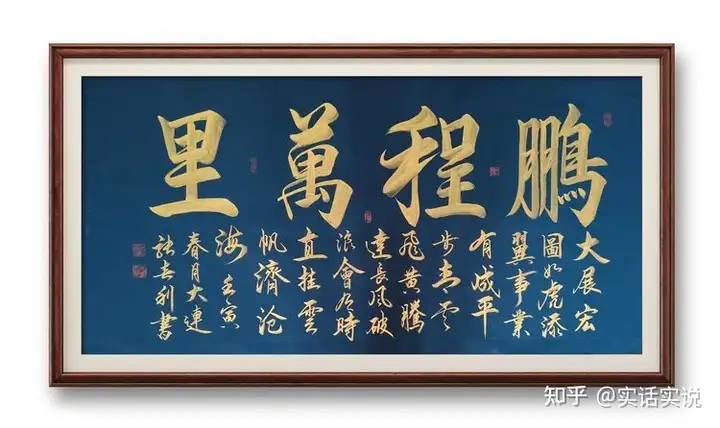 鵬程萬里
大展宏
圖如虎添
翼事業
有成平
步青云
飛黄騰
達長風破
浪會有時
直挂雲
帆濟沧
海壬寅
春月大連
利書
知乎 @实话实说